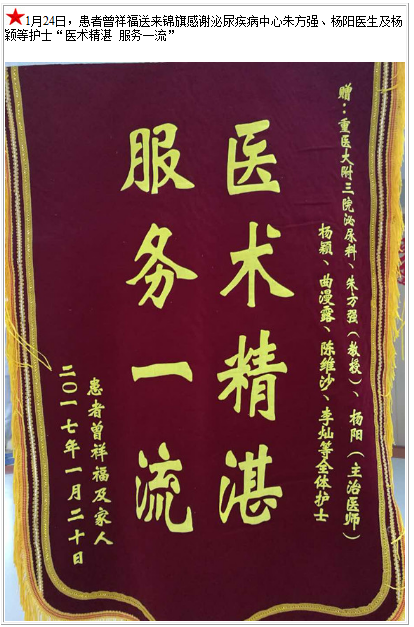 1月24日，患者曾祥福送来锦旗感谢泌尿疾病中心朱方强、杨阳医生及杨
颖等护士“医术精湛 服务一流”
赠：重医大附三院泌尿科、朱方强（教授）、杨阳（主治医师）
杨颖、曲漫露、陈维沙、李灿等全体护士
医术精湛
服务一流
患者曾祥福及家人
二〇一七年一月二十日